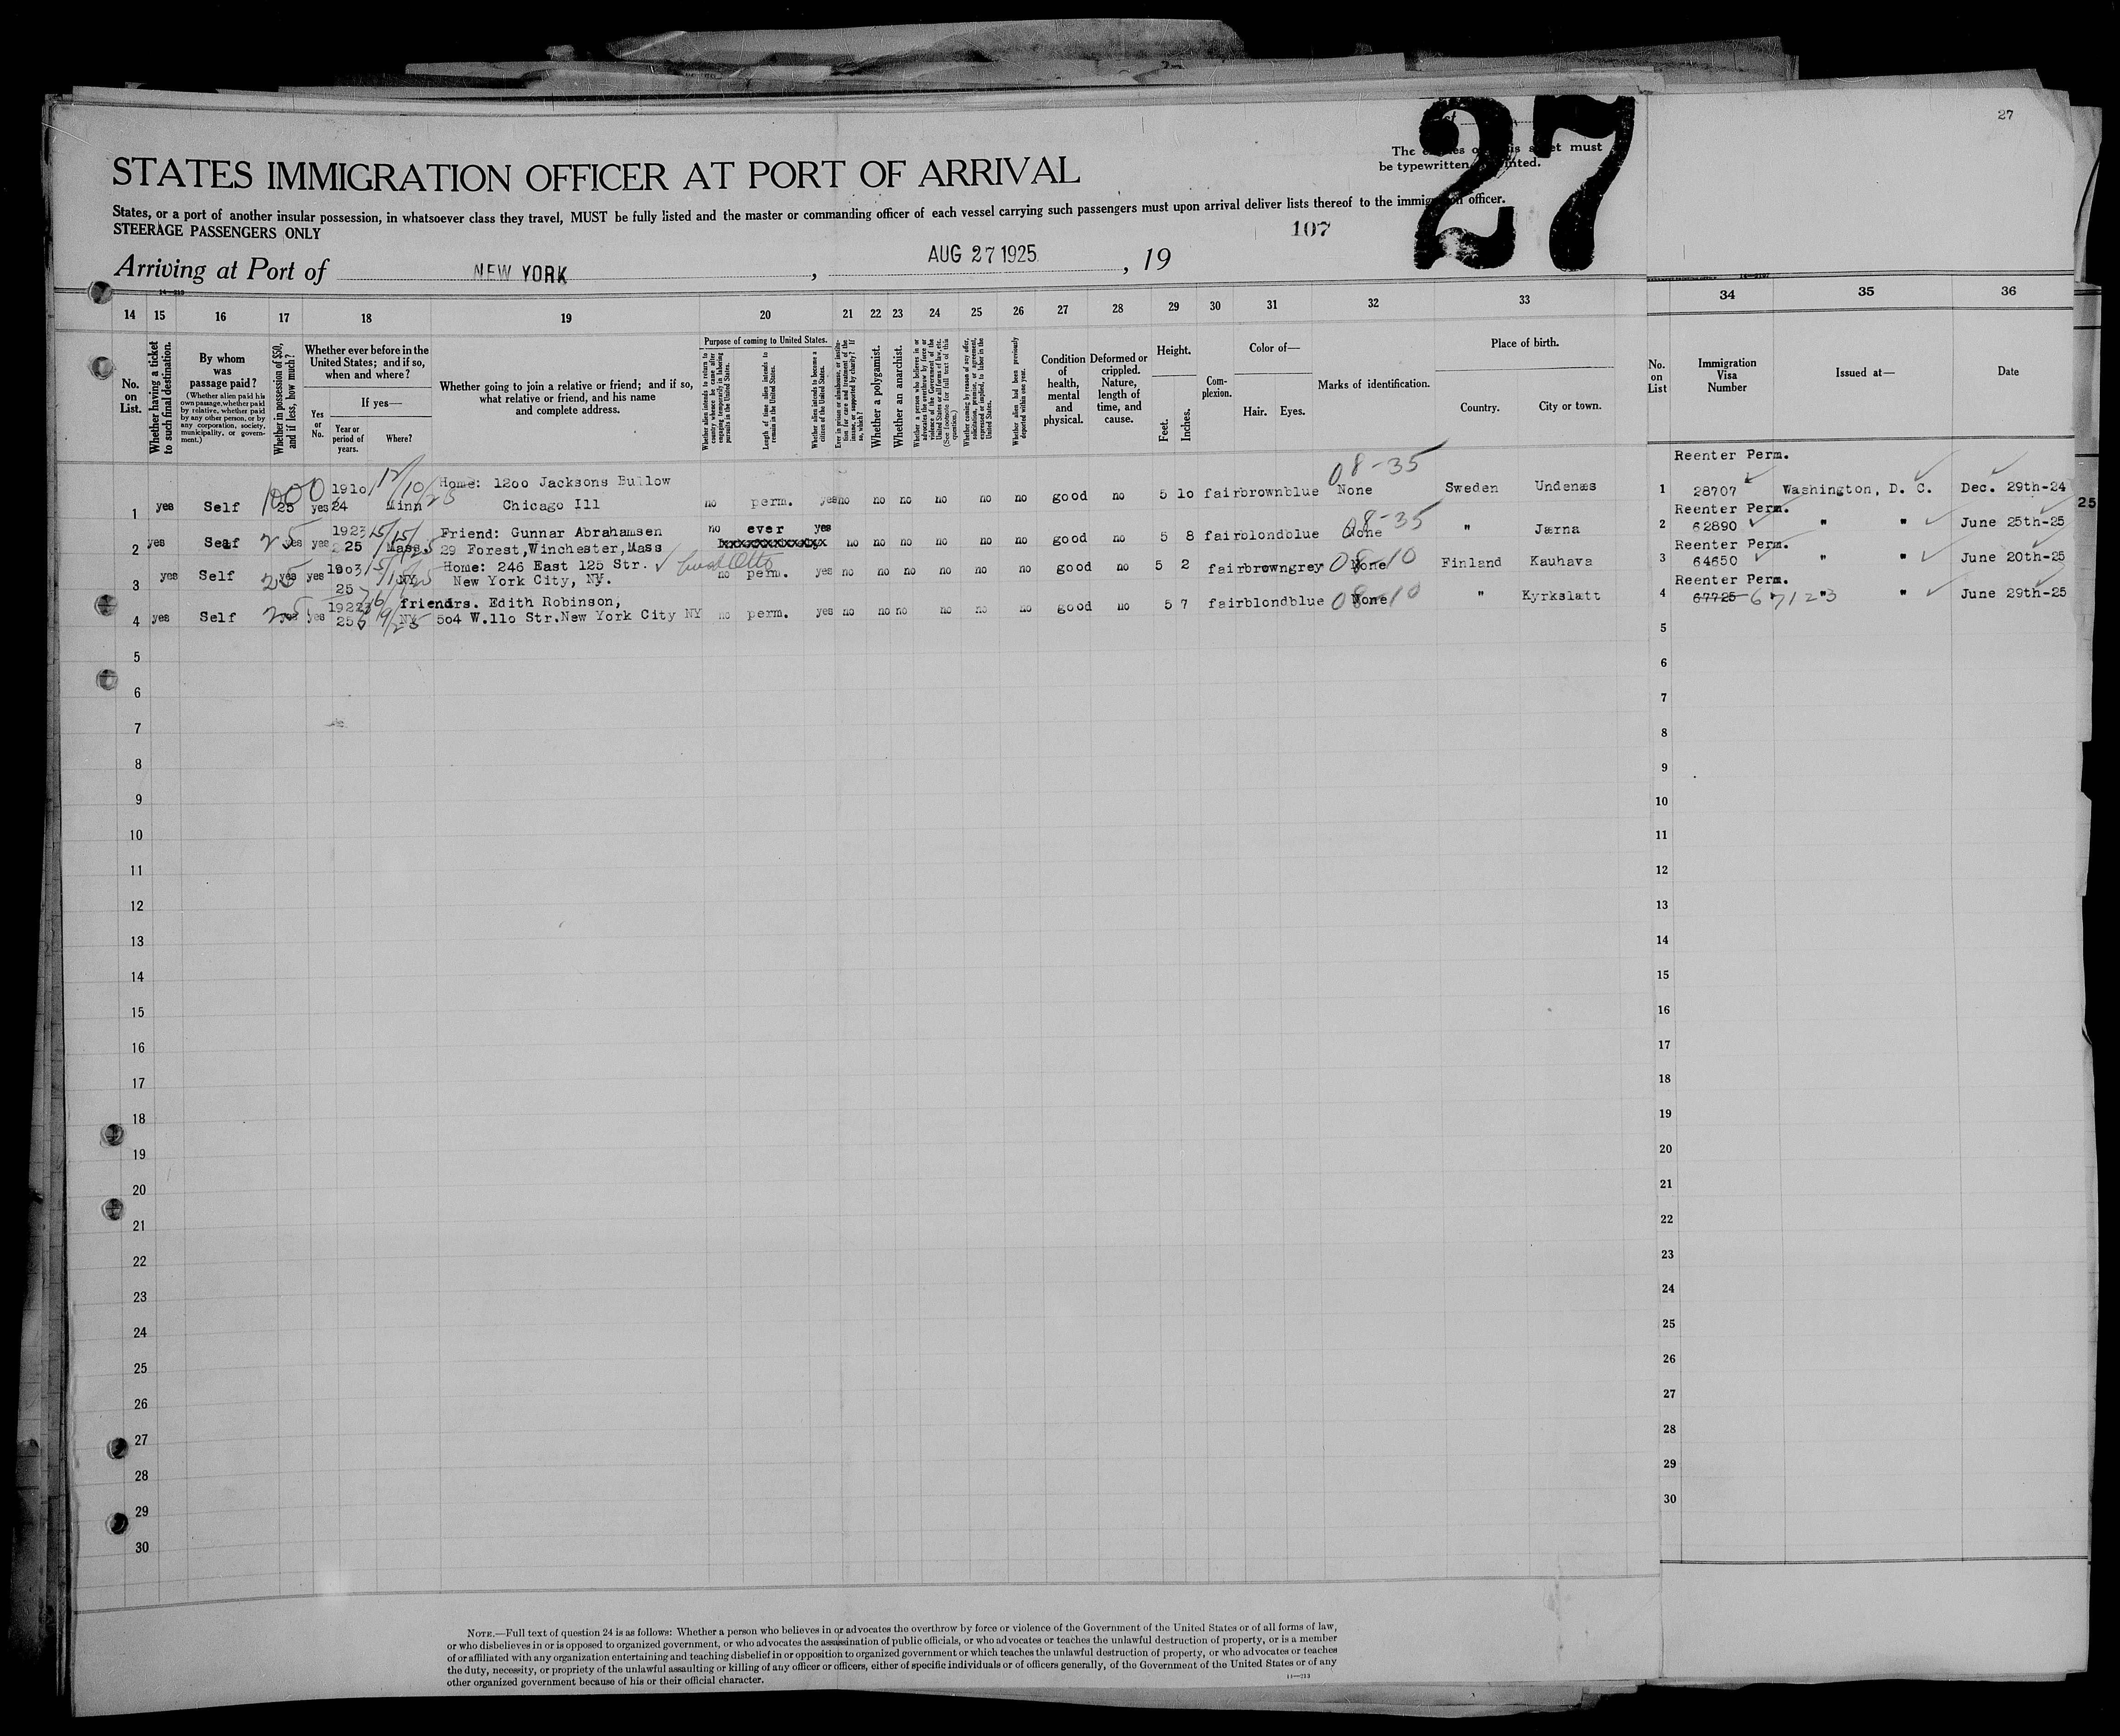 27
27
The entries on this sheet must
be typewritten or printed.
STATES IMMIGRATION OFFICER AT PORT OF ARRIVAL
States, or a port of another insular possession, in whatsoever class they travel, MUST be fully listed and the master or commanding officer of each vessel carrying such passengers must upon arrival deliver lists thereof to the immigration officer.
STEERAGE PASSENGERS ONLY
107
Arriving at Port of NEW YORK, AUG 27 1925, 19
14 15 16 17 18 19 20 21 22 23 24 25 26 27 28 29 30 31 32 33 34 35 36
No. on List.
Whether having a ticket to such final destination.
By whom was passage paid?
(Whether alien paid his own passage, whether paid by relative, whether paid by any other person, or by any corporation, society, municipality, or government.)
Whether in possession of $50, and if less, how much?
Whether ever before in the United States; and if so, when and where?
Yes or No.
If yes—
Year or period of years.
Where?
Whether going to join a relative or friend; and if so, what relative or friend, and his name and complete address.
Purpose of coming to United States.
Whether alien intends to return to country whence he came after engaging temporarily in laboring pursuits in the United States.
Length of time alien intends to remain in the United States.
Whether alien intends to become a citizen of the United States.
Ever in prison or almshouse, or institution for care and treatment of the insane, or supported by charity? If so, which?
Whether a polygamist.
Whether an anarchist.
Whether a person who believes in or advocates the overthrow by force or violence of the Government of the United States or all forms of law, etc. (See footnote for full text of this question.)
Whether coming by reason of any offer, solicitation, promise, or agreement, expressed or implied, to labor in the United States.
Whether alien had been previously deported within one year.
Condition of health, mental and physical.
Deformed or crippled. Nature, length of time, and cause.
Height.
Feet. Inches.
Complexion.
Color of—
Hair. Eyes.
Marks of identification.
Place of birth.
Country. City or town.
No. on List
Immigration Visa Number
Issued at—
Date
1 yes Self 1000 25 yes 1910 24 Minn 12/10/23 Home: 1200 Jacksons Bullow
Chicago Ill no perm. yes no no no no no no good no 5 10 fair brown blue None 08-35 Sweden Undenæs
1 Reenter Perm.
28707 Washington, D. C. Dec. 29th-24
2 yes Self 25 yes yes 1923 25 Mass. 5/15/25 Friend: Gunnar Abrahamsen
29 Forest, Winchester, Mass no ever yes no no no no no no good no 5 8 fair blond blue None 08-35 " Jærna
2 Reenter Perm.
62890 " " June 25th-25
3 yes Self 25 yes yes 1903 25 NY Home: 246 East 125 Str.
New York City, NY. no perm. yes no no no no no no good no 5 2 fair brown grey None 08-10 Finland Kauhava
3 Reenter Perm.
64650 " " June 20th-25
4 yes Self yes yes 1922 25 NY friend Mrs. Edith Robinson,
504 W.110 Str. New York City NY no perm. yes no no no no no no good no 5 7 fair blond blue None 08-10 " Kyrkslatt
4 Reenter Perm.
67725 67123 " " June 29th-25
25
5 5
6 6
7 7
8 8
9 9
10 10
11 11
12 12
13 13
14 14
15 15
16 16
17 17
18 18
19 19
20 20
21 21
22 22
23 23
24 24
25 25
26 26
27 27
28 28
29 29
30 30
NOTE.—Full text of question 24 is as follows: Whether a person who believes in or advocates the overthrow by force or violence of the Government of the United States or of all forms of law,
or who disbelieves in or is opposed to organized government, or who advocates the assassination of public officials, or who advocates or teaches the unlawful destruction of property, or is a member
of or affiliated with any organization entertaining and teaching disbelief in or opposition to organized government or which teaches the unlawful destruction of property, or who advocates or teaches
the duty, necessity, or propriety of the unlawful assaulting or killing of any officer or officers, either of specific individuals or of officers generally, of the Government of the United States or of any
other organized government because of his or their official character.
14—213